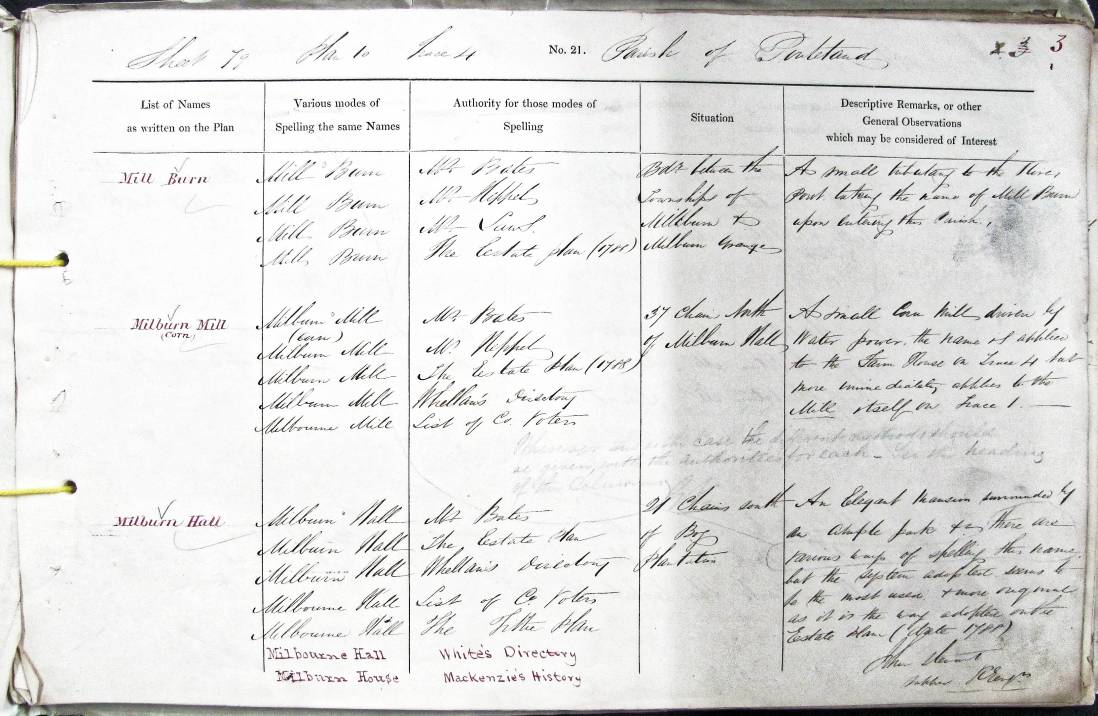 Sheet 79 Plan 10 Trace 4 No. 21. Parish of Ponteland 3 3
List of Names
as written on the Plan
Various modes of
Spelling the same Names
Authority for those modes of
Spelling
Situation
Descriptive Remarks, or other
General Observations
which may be considered of Interest
Mill Burn
Mill Burn
Mill Burn
Mill Burn
Mill Burn
Mr. Bates
Mr. Heppel
Mr.
The Estate plan (1788)
Bdy. between the
Townships of
Milburn &
Milburn Grange
A small tributary to the River
Pont taking the name of Mill Burn
upon entering this Parish.
Milburn Mill
(Corn)
Milburn Mill
(Corn)
Milburn Mill
Milburn Mill
Milburn Mill
Milbourne Mill
Mr. Bates
Mr. Heppel
The Estate Plan (1788)
Whellan's Directory
List of Co. Voters
37 Chains North
of Milburn Hall
A small Corn Mill driven by
Water power. the name is applied
to the Farm House on Trace 4 but
more immediately applies to the
Mill itself on Trace 1.
Wherever is the case the different methods should
be given, with the authorities for each - in the heading
of the Column
Milburn Hall
Milburn Hall
Milburn Hall
Milburn Hall
Milbourne Hall
Milbourne Hall
Milbourne Hall
Milburn House
Mr. Bates
The Estate Plan
Whellan's Directory
List of Co. Voters
The Tithe Plan
White's Directory
Mackenzie's History
21 Chains south
of Bog
Plantation
An Elegant Mansion surrounded by
an ample park &c. There are
various ways of spelling this name,
but the system adopted seems to
be the most used & more original
as it is the way adopted on the
Estate plan (date 1788)
John
Sapper R.Engrs